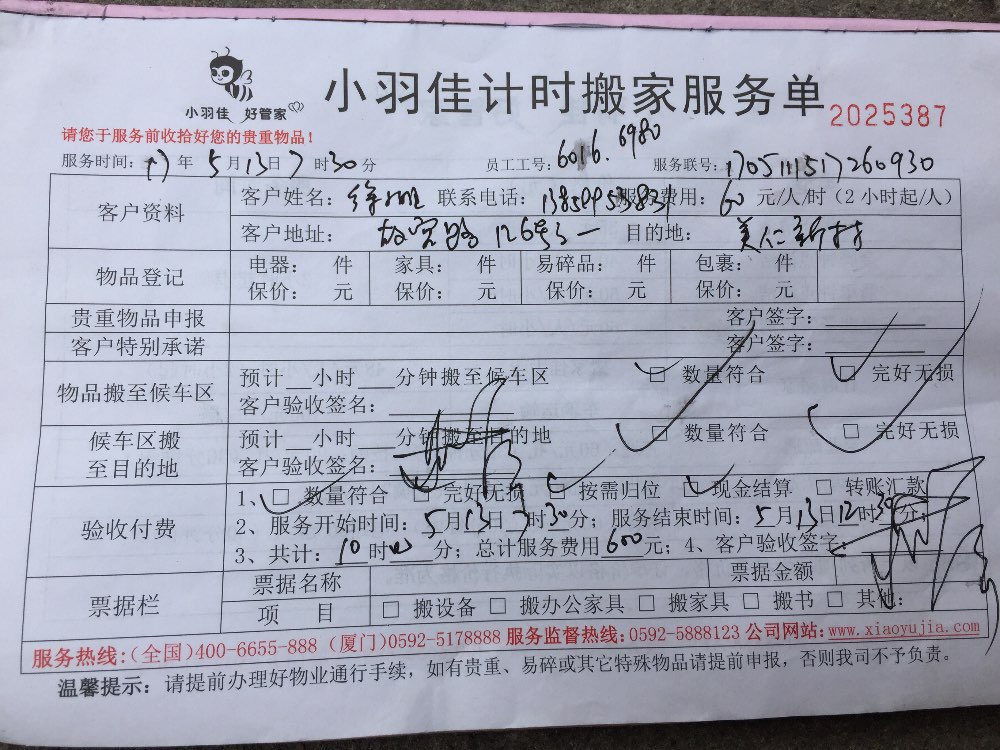 小羽佳 好管家
小羽佳计时搬家服务单
2025387
请您于服务前收拾好您的贵重物品！
服务时间：17年5月13日7时30分 员工工号：6016.6980 服务联号：1705111517260930
客户资料 客户姓名： 联系电话： 服务费用：60元/人/时（2小时起/人）
客户地址： 126号 目的地：美仁新村
物品登记 电器： 件 家具： 件 易碎品： 件 包裹： 件
保价： 元 保价： 元 保价： 元 保价： 元
贵重物品申报 客户签字：
客户特别承诺 客户签字：
物品搬至候车区 预计__小时__分钟搬至候车区 □ 数量符合 □ 完好无损
客户验收签名：
候车区搬至目的地 预计__小时__分钟搬至目的地 □ 数量符合 □ 完好无损
客户验收签名：
验收付费 1、□ 数量符合 □ 完好无损 □ 按需归位 □ 现金结算 □ 转账汇款
2、服务开始时间：5月13日7时30分；服务结束时间：5月13日12时30分；
3、共计：10时00分；总计服务费用600元；4、客户验收签字：
票据栏 票据名称 票据金额
项 目 □ 搬设备 □ 搬办公家具 □ 搬家具 □ 搬书 □ 其他：
服务热线：(全国)400-6655-888 (厦门)0592-5178888 服务监督热线：0592-5888123 公司网站：www.xiaoyujia.com
温馨提示：请提前办理好物业通行手续，如有贵重、易碎或其它特殊物品请提前申报，否则我司不予负责。